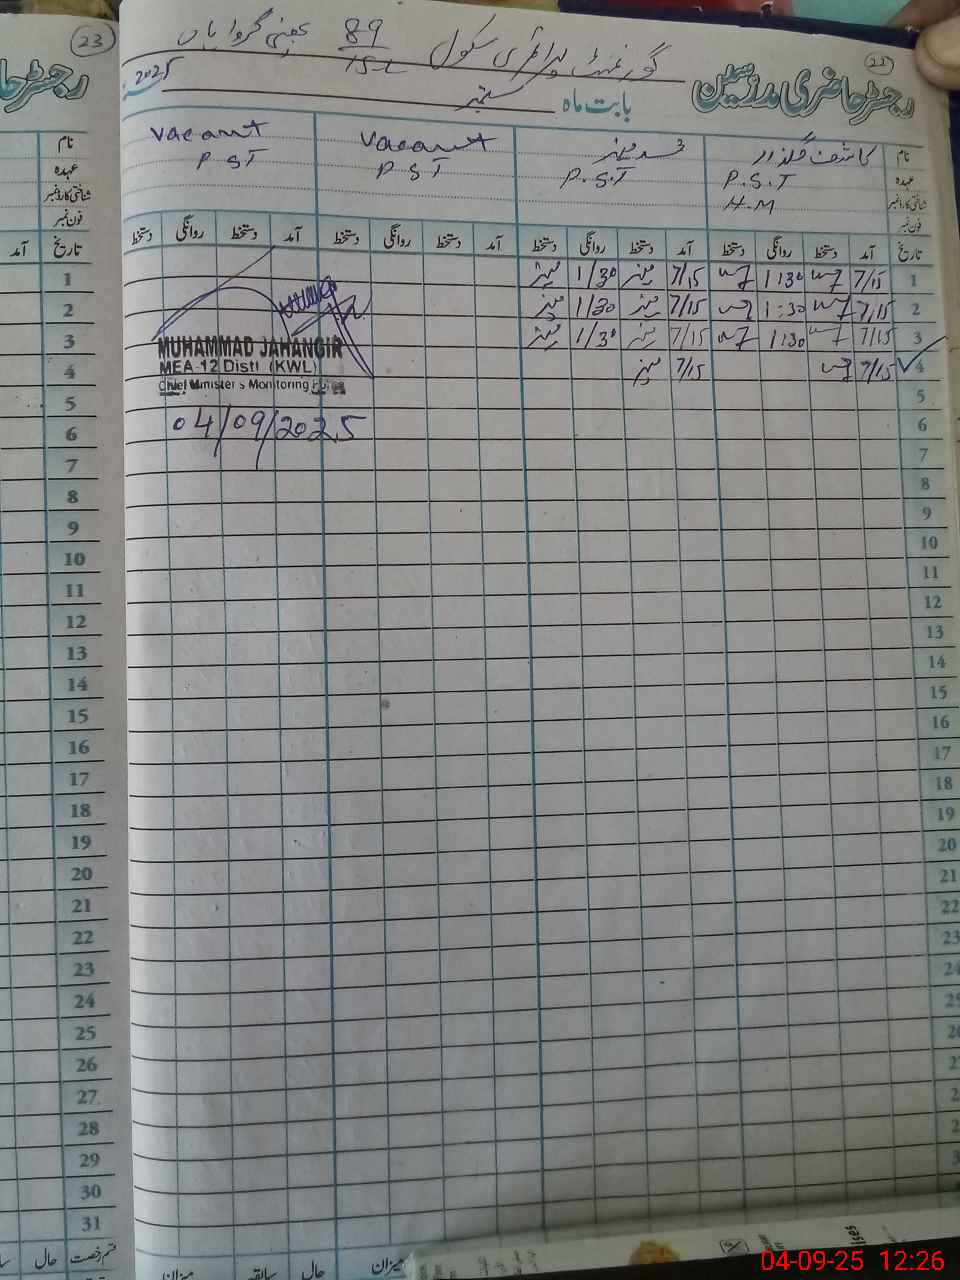 23
رجسٹر حا
22
رجسٹر حاضری مدرسین
گورنمنٹ پرائمری سکول 89/15-L
بابت ماہ ستمبر 2025
نام کاشف گلزار Vacant Vacant
عہدہ P.S.T P.S.T P.S.T P.S.T
شناختی کارڈ نمبر H.M
فون نمبر
تاریخ آمد دستخط روانگی دستخط آمد دستخط روانگی دستخط آمد دستخط روانگی دستخط آمد دستخط روانگی دستخط
1 7/15 1:30 7/15 1/30
2 7/15 1:30 7/15 1/30
3 7/15 1:30 7/15 1/30
4 7/15 7/15
MUHAMMAD JAHANGIR
MEA-12 Distt (KWL)
Chief Minister's Monitoring
04/09/2025
5
6
7
8
9
10
11
12
13
14
15
16
17
18
19
20
21
22
23
24
25
نام
عہدہ
شناختی کارڈ نمبر
فون نمبر
تاریخ آمد
1
2
3
4
5
6
7
8
9
10
11
12
13
14
15
16
17
18
19
20
21
22
23
24
25
26
27
28
29
30
31
قسم رخصت حال
میزان حال سابقہ میزان
04-09-25 12:26